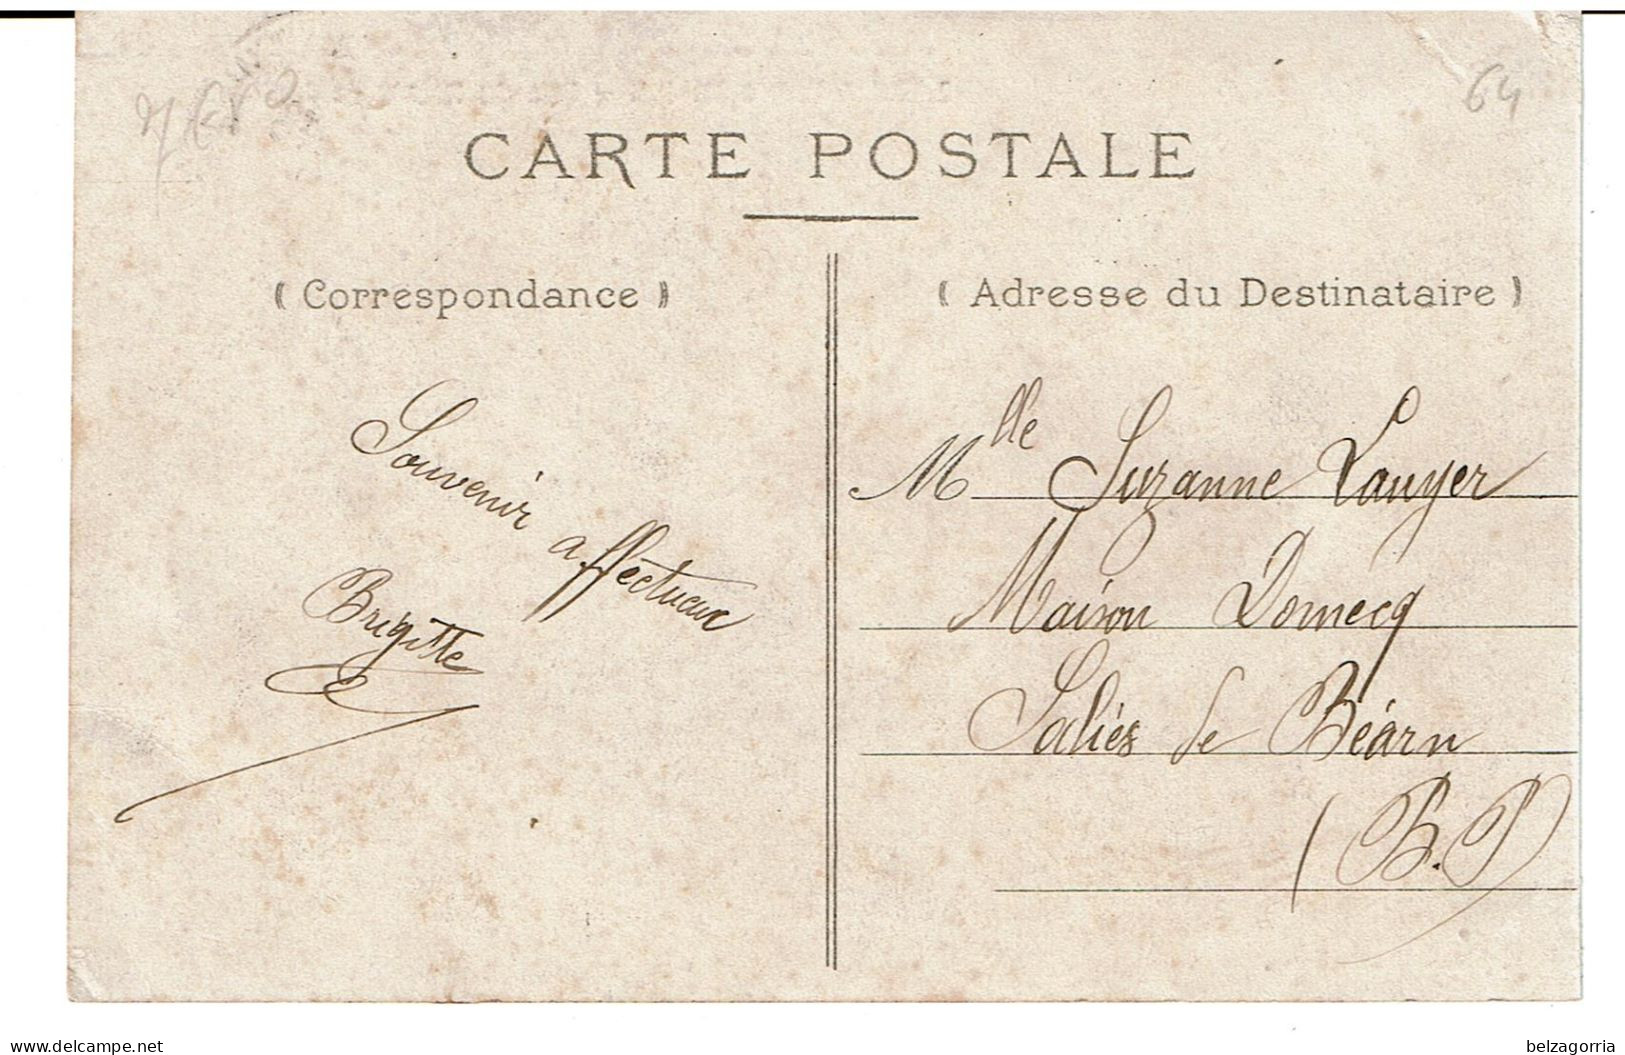 64
CARTE POSTALE
( Correspondance )
( Adresse du Destinataire )
Souvenir
affectueux
Brigitte
Mlle Suzanne Lauyer
Maison Domecq
Saliès de Béarn
(B.P)
www.delcampe.net
belzagorria